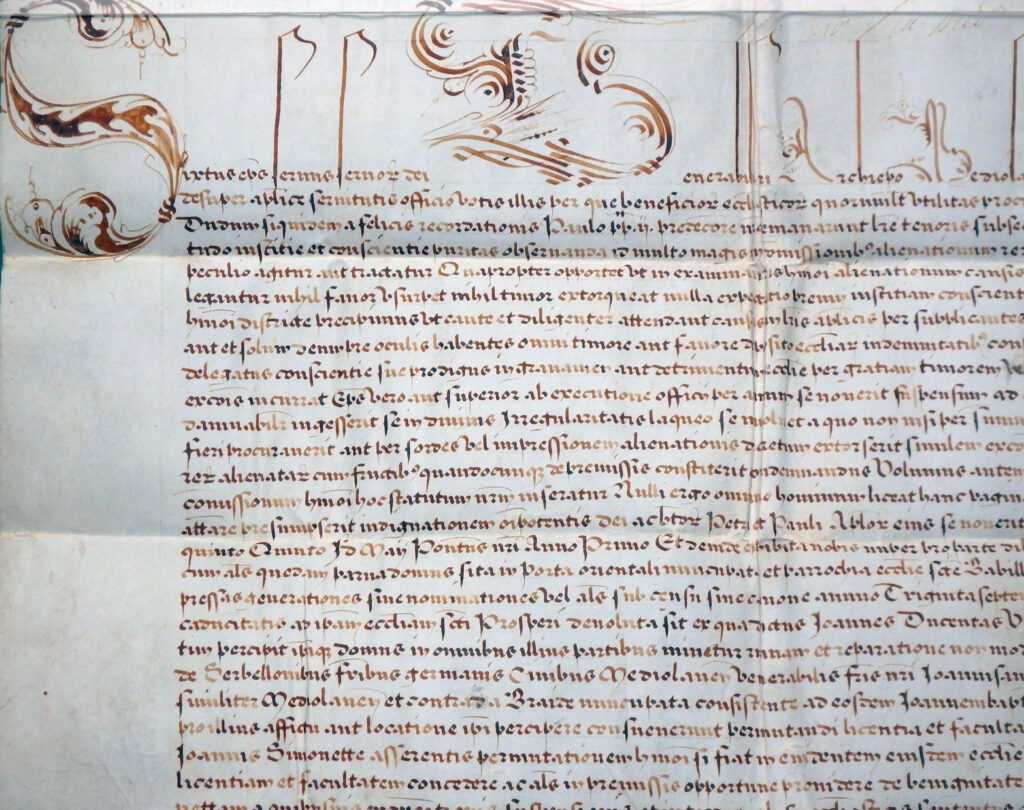 Sixtus eps servus servor dei Venerabili Archiepo Mediola
desuper aplice servitutis officio votis illis per que beneficior ecclasticor quorumlt utilitas proc
Dudum siquidem a felicis recordationis Paulo pp ij predecore emanarunt lre tenoris subse
tudo iusticie et conscientie puritas observanda id multo magis in comissionibus alienationum rer
peculio agitur aut tractatur Quapropter oportet ut in examinandis hmoi alienationum causis
legantur nihil favor usurpet nihil timor extorqueat nulla expectatio premij iustitiam conscient
hmoi districte precipimus ut caute et diligenter attendant causas in lris aplicis per supplicantes
aut et solum deum pre oculis habentes omni timore aut favore deposito eccliar indemnitatibus con
delegatus conscientie sue prodigus in gravamen aut detrimentum ecclie per gratiam timorem ve
excois incurrat Eps vero aut superior ab executione officij per annum se noverit suspensum ad
damnabilr ingesserit se in divinis Irregularitatis laqueo se involvet a quo non nisi per summ
fieri procuraverit aut per sordes vel impressionem alienationis decretum extorserit similem exco
rer alienatar cum fructibus quandocunque de premissis constiterit condemnandus Volumus autem
comissionum hmoi hoc statutum nrm inseratur Nulli ergo omnino hominum liceat hanc pagina
attare presumpserit indignationem oipotentis dei ac btor Petri et Pauli Aplor eius se noverit
quinto Quinto Id Maij Pontus nri Anno Primo Et deinde exhibita nobis nuper pro parte dil
cum als quedam parva domus sita in Porta orientali nuncupata et parrochia ecclie scti Babill
pressas generationes sive nominationes vel als sub censu sive canone annuo Triginta septem
caducitatis ad ipsam ecclesiam scti Prosperi devoluta sit ex qua dictus Joannes Ducentas
tum percipit ipsique domus in omnibus illius partibus minetur ruinam et reparatione non mo
de Serbellonibus fribus germanis Civibus Mediolanen Venerabilis fris nri Joannis an
similiter Mediolanen et contrada Braide nuncupata consistente ad eosdem Joannem bapt
pro illius affictu aut locatione ipsi percipere consuenerunt permutandi licentia et faculta
Joannis Simonette asserentis permutationem hmoi si fiat in evidentem eiusdem ecclie
licentiam et facultatem concedere ac als in premissis opportune providere de benignitate